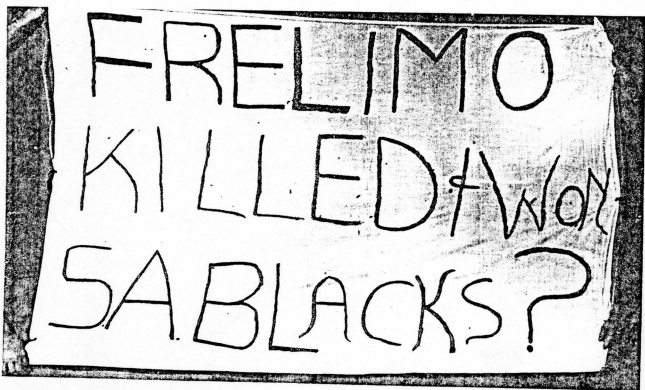 FRELIMO
KILLED & WON
SABLACKS?